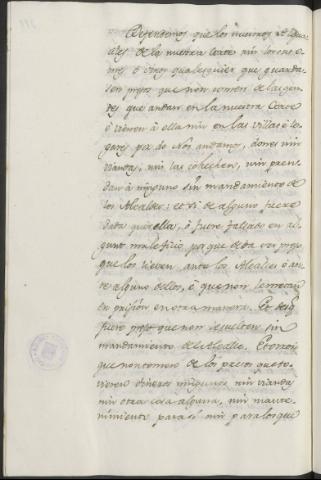 Defendemos que los nuestros Alguaci-
les de la nuestra Corte nin los ome
omes ó otros qualesquier que guarda-
sen presos que non tomen de las gen-
tes que andan en la nuestra Corte
ó vienen á ella nin en las villas ó lo-
gares por do Nos andamos, dones nin
vianda; nin las cohechen, nin pren-
dan á ninguno sin mandamiento de
los Alcaldes: et si de alguno fuere
dada querella, ó fuere fallado en al-
gunt maleficio, porque deba ser preso
que los lieven ante los Alcaldes ó an-
te alguno dellos, ó que non le metan
en prision en otra manera. Et desq.
fuere preso que non le suelten sin
mandamiento de Alcalde. Et otrosi
que non tomen de los presos que to-
vieren dineros ningunos nin vianda
nin otra cosa alguna, nin mante-
nimiento para sí nin para los que